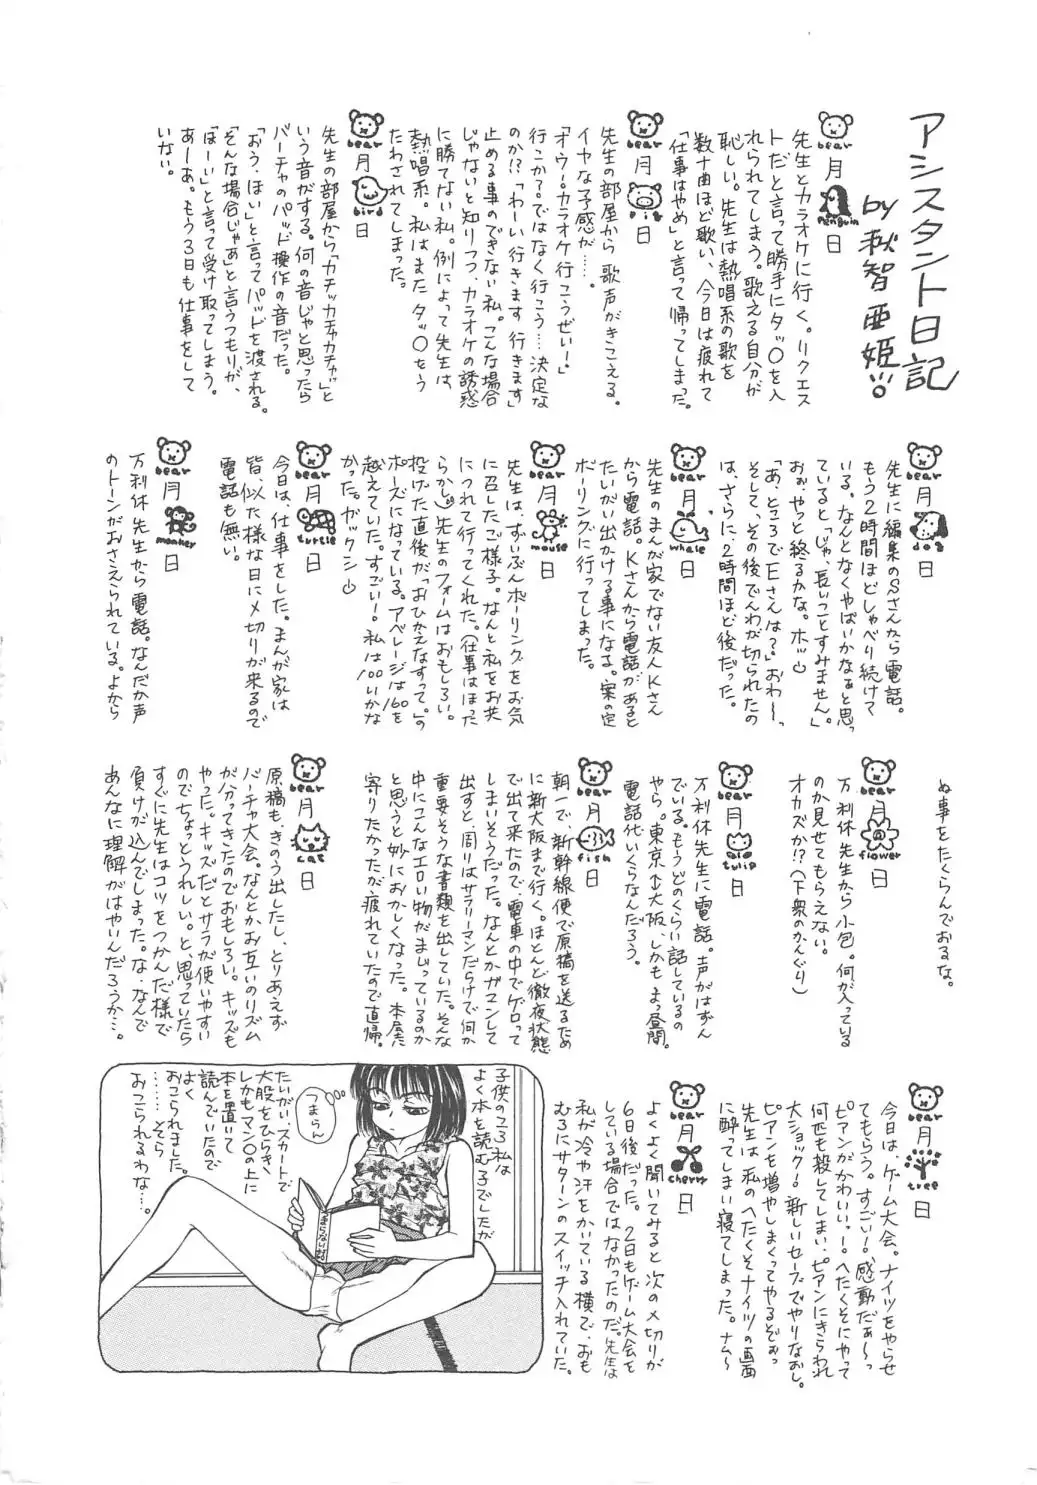 アシスタント日記
by 秋智亜姫
bear月 penguin日
先生とカラオケに行く。リクエス
トだと言って勝手にタッ〇を入
れられてしまう。歌える自分が
恥しい。先生は熱唱系の歌を
数十曲ほど歌い、今日は疲れて
「仕事はやめ」と言って帰ってしまった。
bear月 pig日
先生の部屋から歌声がきこえる。
イヤな予感が……。
「オウ!カラオケ行こうぜい!」
行こか?ではなく行こう…決定な
のか!?「わーい行きます行きます」
止める事のできない私。こんな場合
じゃないと知りつつ、カラオケの誘惑
に勝てない私。例によって先生は、
熱唱系。私はまたタッ〇をう
たわされてしまった。
bear月 bird日
先生の部屋から「カチッカチャカチャッ」と
いう音がする。何の音じゃと思ったら
バーチャのパッド操作の音だった。
「おう、ほい」と言ってパッドを渡される。
「そんな場合じゃあ」と言うつもりが、
「ほーい」と言って受け取ってしまう。
あーあ。もう3日も仕事をして
いない。
bear月 dog日
先生に編集のSさんから電話。
もう2時間ほどしゃべり続けて
いる。なんとなくやばいかなぁと思っ
ていると「じゃ、長いことすみません。」
おぉ、やっと終るかな。ホッ
「あ、ところでEさんは?」おわ〜、
そして、その後でんわが切られたの
は、さらに、2時間ほど後だった。
bear月 whale日
先生のまんが家でない友人Kさん
から電話。Kさんから電話があると
たいがい出かける事になる。案の定
ボーリングに行ってしまった。
bear月 mouse日
先生は、ずいぶんボーリングをお気
に召したご様子。なんと私をお共
につれて行ってくれた。(仕事はほった
らかし)先生のフォームはおもしろい。
投げた直後が「おひかえなすって。」の
ポーズになっている。アベレージは160を
越えていた。すごい!私は100いかな
かった。ガックシ
bear月 turtle日
今日は、仕事をした。まんが家は
皆、似た様な日に〆切りが来るので
電話も無い。
bear月 monkey日
万利休先生から電話。なんだか声
のトーンがおさえられている。よから
ぬ事をたくらんでおるな。
bear月 flower日
万利休先生から小包。何が入っている
のか見せてもらえない。
オカズか!?(下衆のかんぐり)
bear月 tulip日
万利休先生に電話。声がはずん
でいる。もうどのくらい話しているの
やら。東京⇔大阪、しかもまっ昼間。
電話代いくらなんだろう。
bear月 fish日
朝一で、新幹線便で原稿を送るため
に新大阪まで行く。ほとんど徹夜状態
で出て来たので、電車の中でゲロって
しまいそうだった。なんとかガマンして
出すと、周りはサラリーマンだらけで何か
重要そうな書類を出していた。そんな
中にこんなエロい物がまじっているのか
と思うと妙におかしくなった。本屋に
寄りたかったが疲れていたので直帰。
bear月 cat日
原稿も、きのう出したし、とりあえず
バーチャ大会。なんとかお互いのリズム
が分ってきたのでおもしろい。キッズも
やった。キッズだとサラが使いやすい
のでちょっとうれしい。と、思っていたら
すぐに先生はコツをつかんだ様で
負けが込んでしまった。な、なんで
あんなに理解がはやいんだろうか…。
bear月 tree日
今日は、ゲーム大会。ナイツをやらせ
てもらう。すごい!感動だぁ〜っ
ピアンがかわいい!。へたくそにやって
何匹も殺してしまい、ピアンにきらわれ
大ショック!新しいセーブでやりなおし。
ピアンを増やしまくってやるぞぉっ
先生は、私のへたくそナイツの画面
に酔ってしまい寝てしまった。ナム〜
bear月 cherry日
よくよく聞いてみると次の〆切りが
6日後だった。2日もゲーム大会を
している場合ではなかったのだ。先生は
私が冷や汗をかいている横で、おも
むろにサターンのスイッチ入れていた。